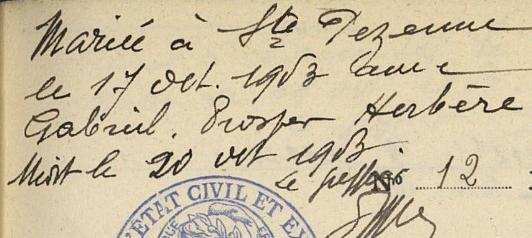 Mariée à Ste Pezenne
le 17 oct. 1903 avec
Gabriel. Prosper Herbère
Mort le 20 oct 1903.
Le greffier
No 12
ETAT CIVIL ET